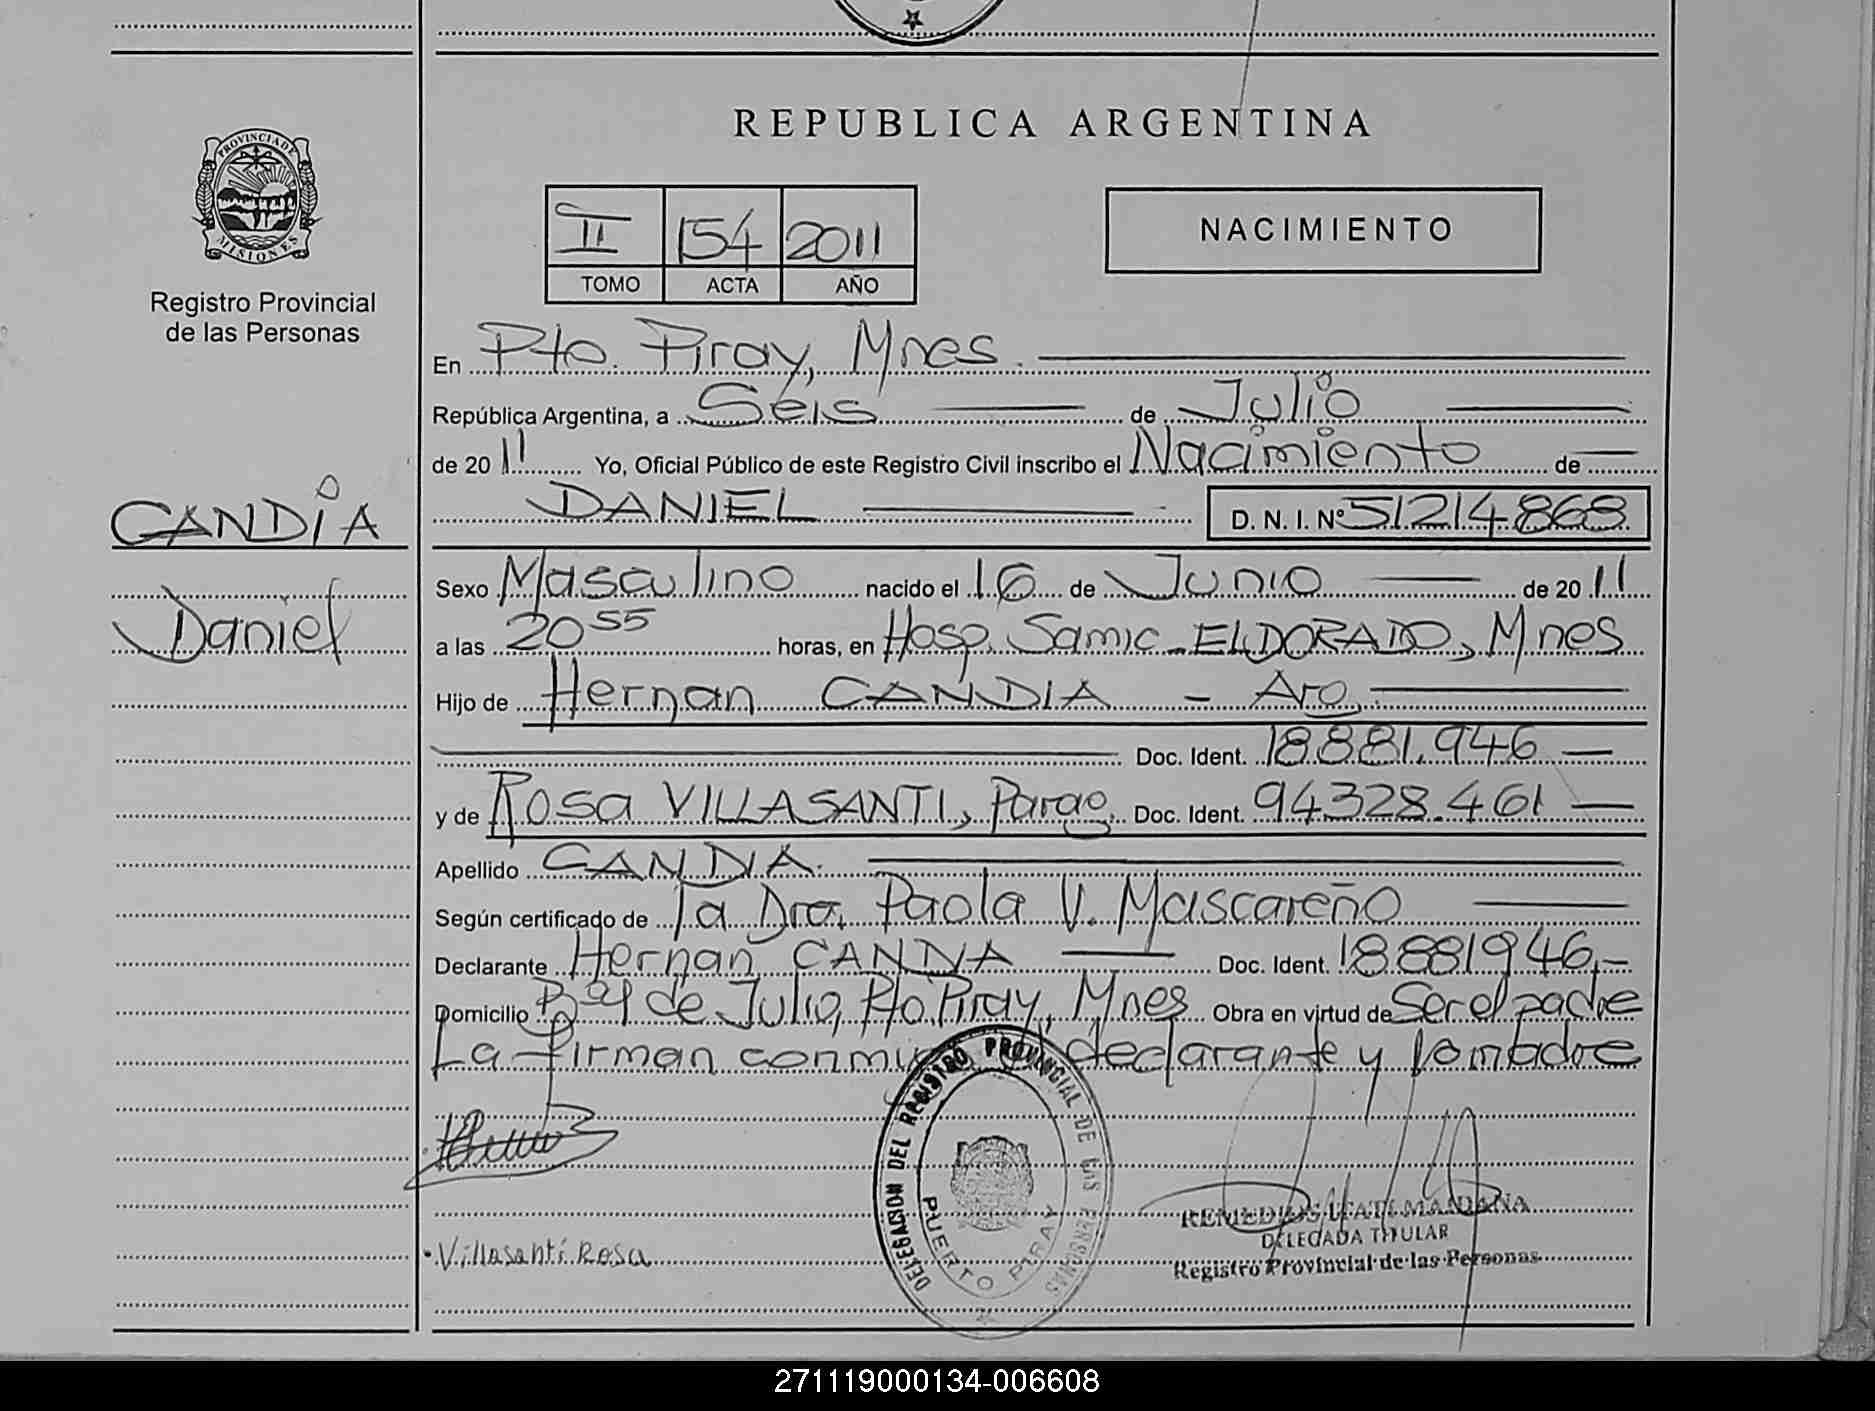 REPUBLICA ARGENTINA
PROVINCIA DE MISIONES
Registro Provincial
de las Personas
II 154 2011
TOMO ACTA AÑO
NACIMIENTO
En Pto. Piray, Mnes.
República Argentina, a Seis de Julio
de 2011 Yo, Oficial Público de este Registro Civil inscribo el Nacimiento de
CANDIA
DANIEL D. N. I. Nº 51214868
Daniel
Sexo Masculino nacido el 16 de Junio de 2011
a las 20 55 horas, en Hosp. Samic - ELDORADO, Mnes
Hijo de Hernan CANDIA - Arg.
Doc. Ident. 18881.946
y de Rosa VILLASANTI, Parag. Doc. Ident. 94328.461
Apellido CANDIA.
Según certificado de la Dra. Paola V. Mascareño
Declarante Hernan CANDIA Doc. Ident. 18881946.-
Domicilio Bº 9 de Julio, Pto Piray, Mnes Obra en virtud de Ser el padre
La firman conmigo declarante y
DELEGACION DEL REGISTRO PROVINCIAL DE LAS PERSONAS
PUERTO PIRAY
Villasanti Rosa
REMEDIOS
DELEGADA TITULAR
Registro Provincial de las Personas
271119000134-006608